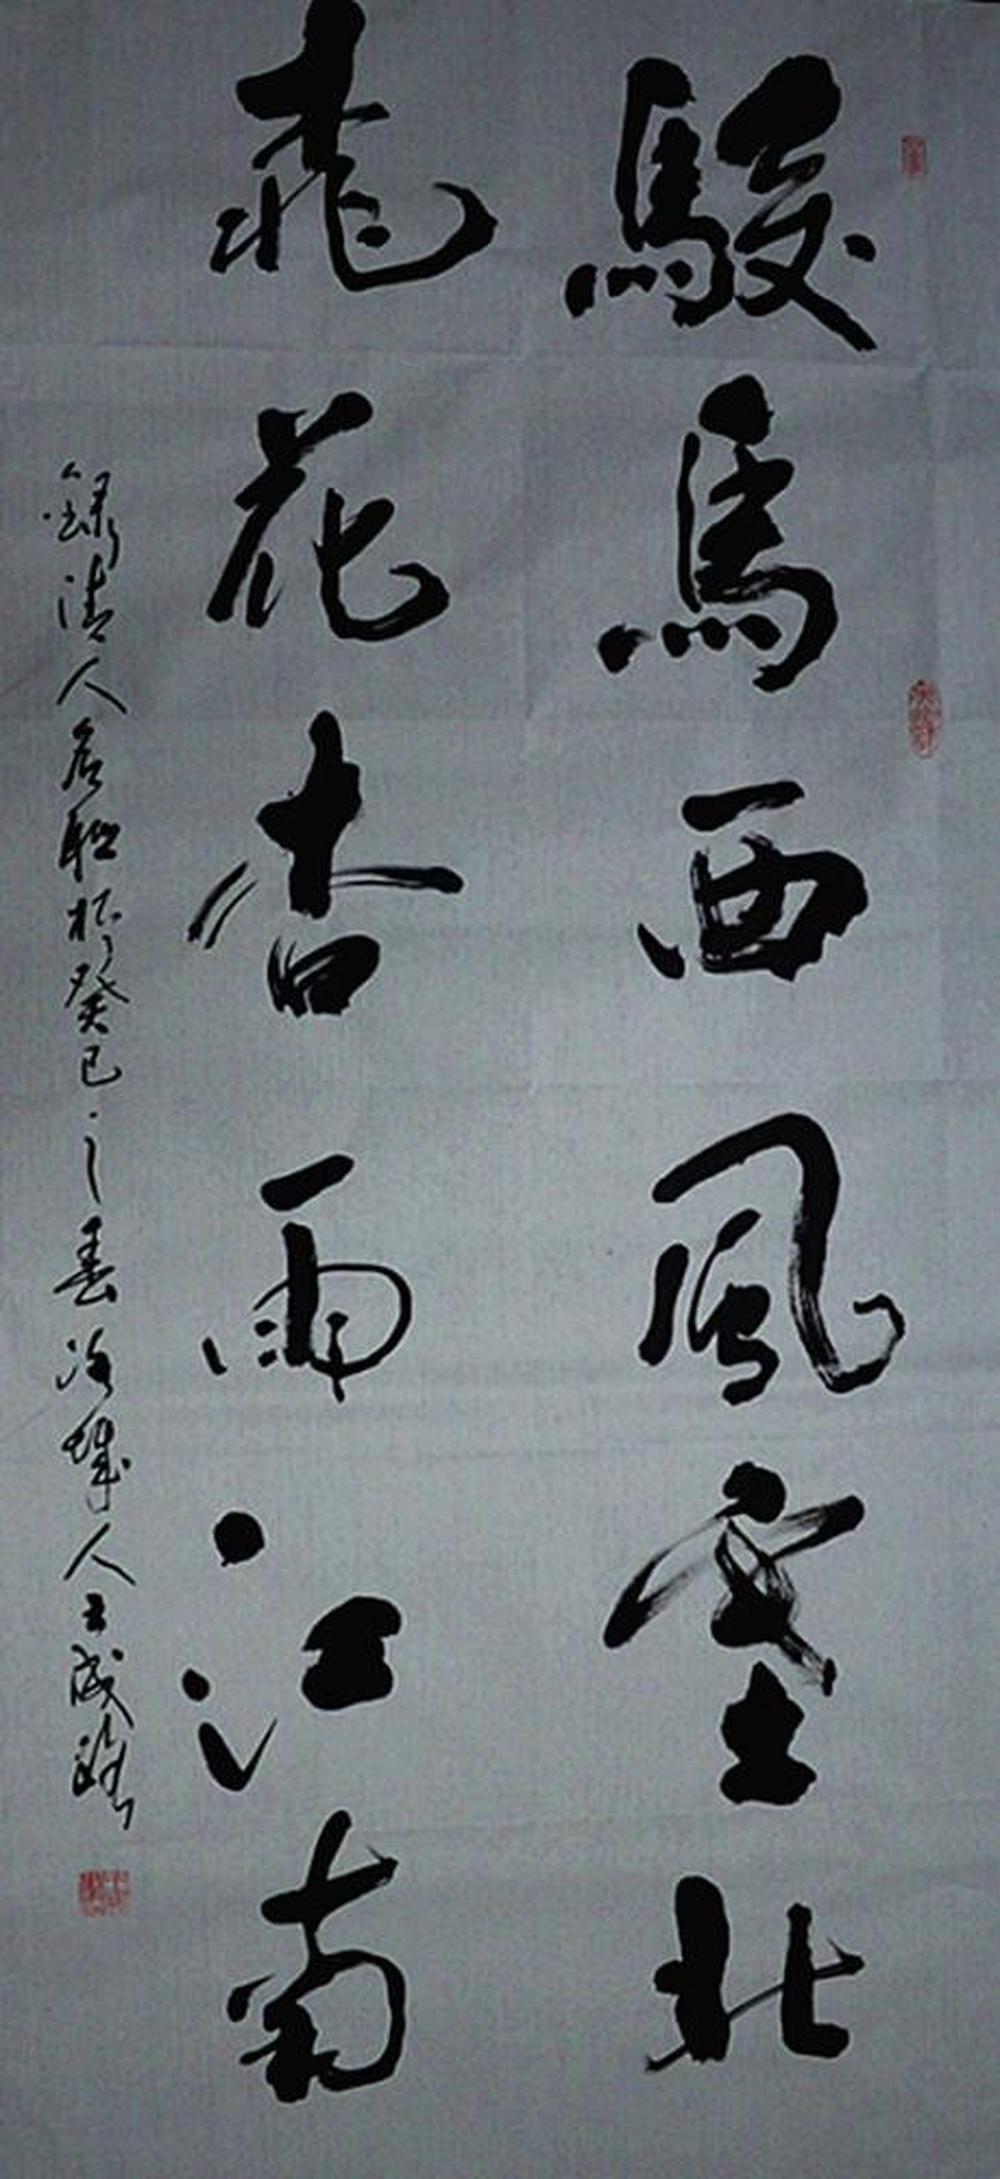 駿馬西風塞北
飛花杏雨江南
錄清人名聯於癸巳之春
人王成